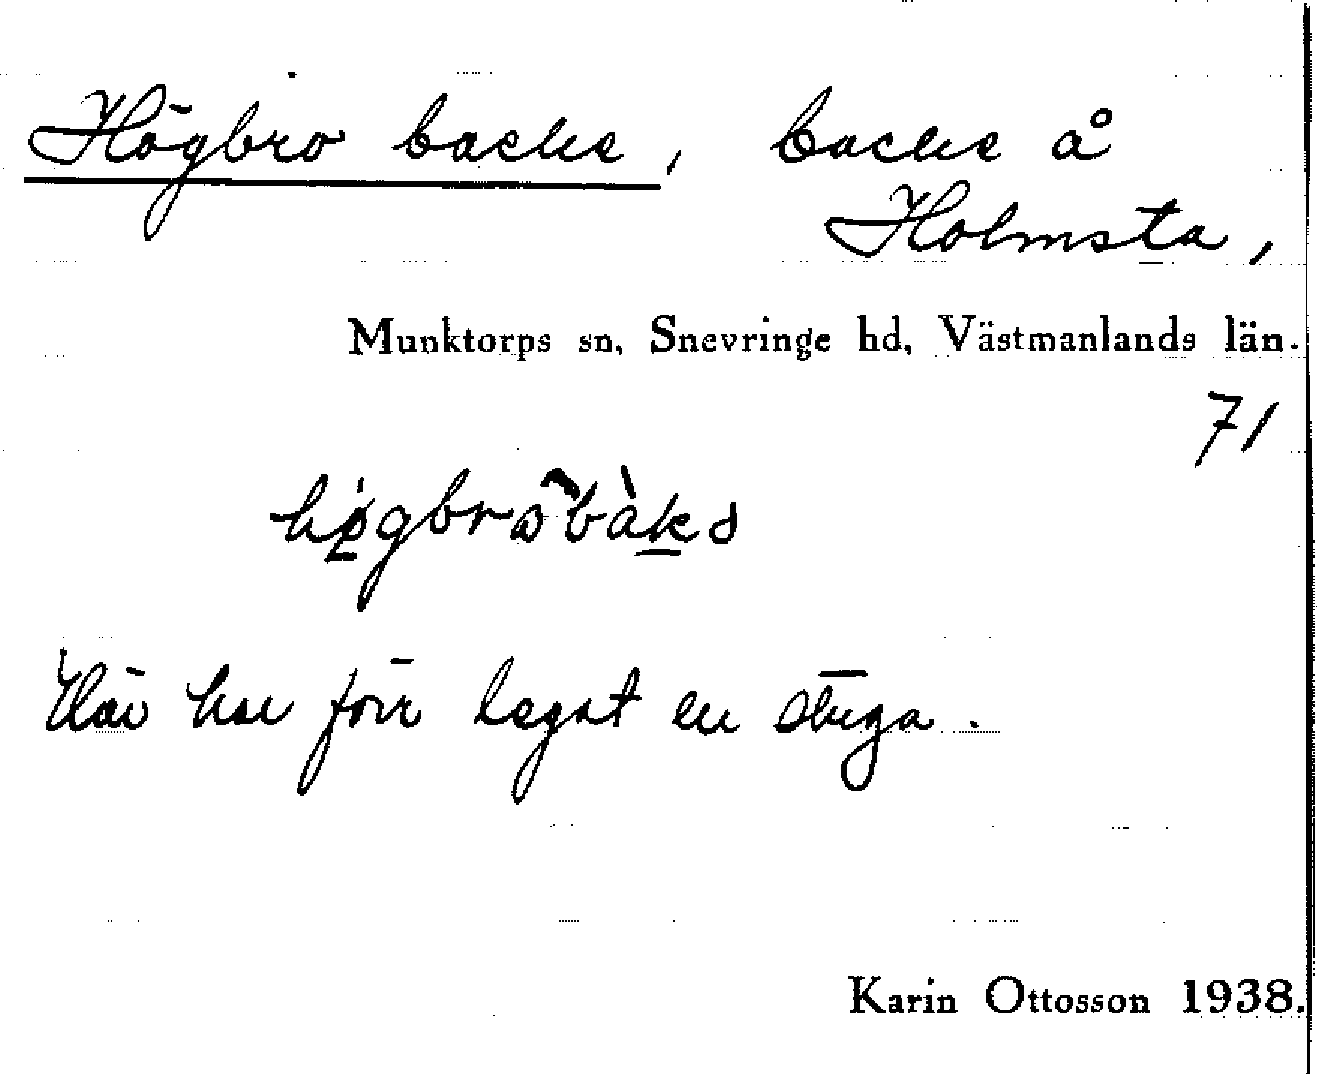 Högbro backe, backe å
Holmsta,
Munktorps sn, Snevringe hd, Västmanlands län.
71
Här har förr legat en stuga.
Karin Ottosson 1938.